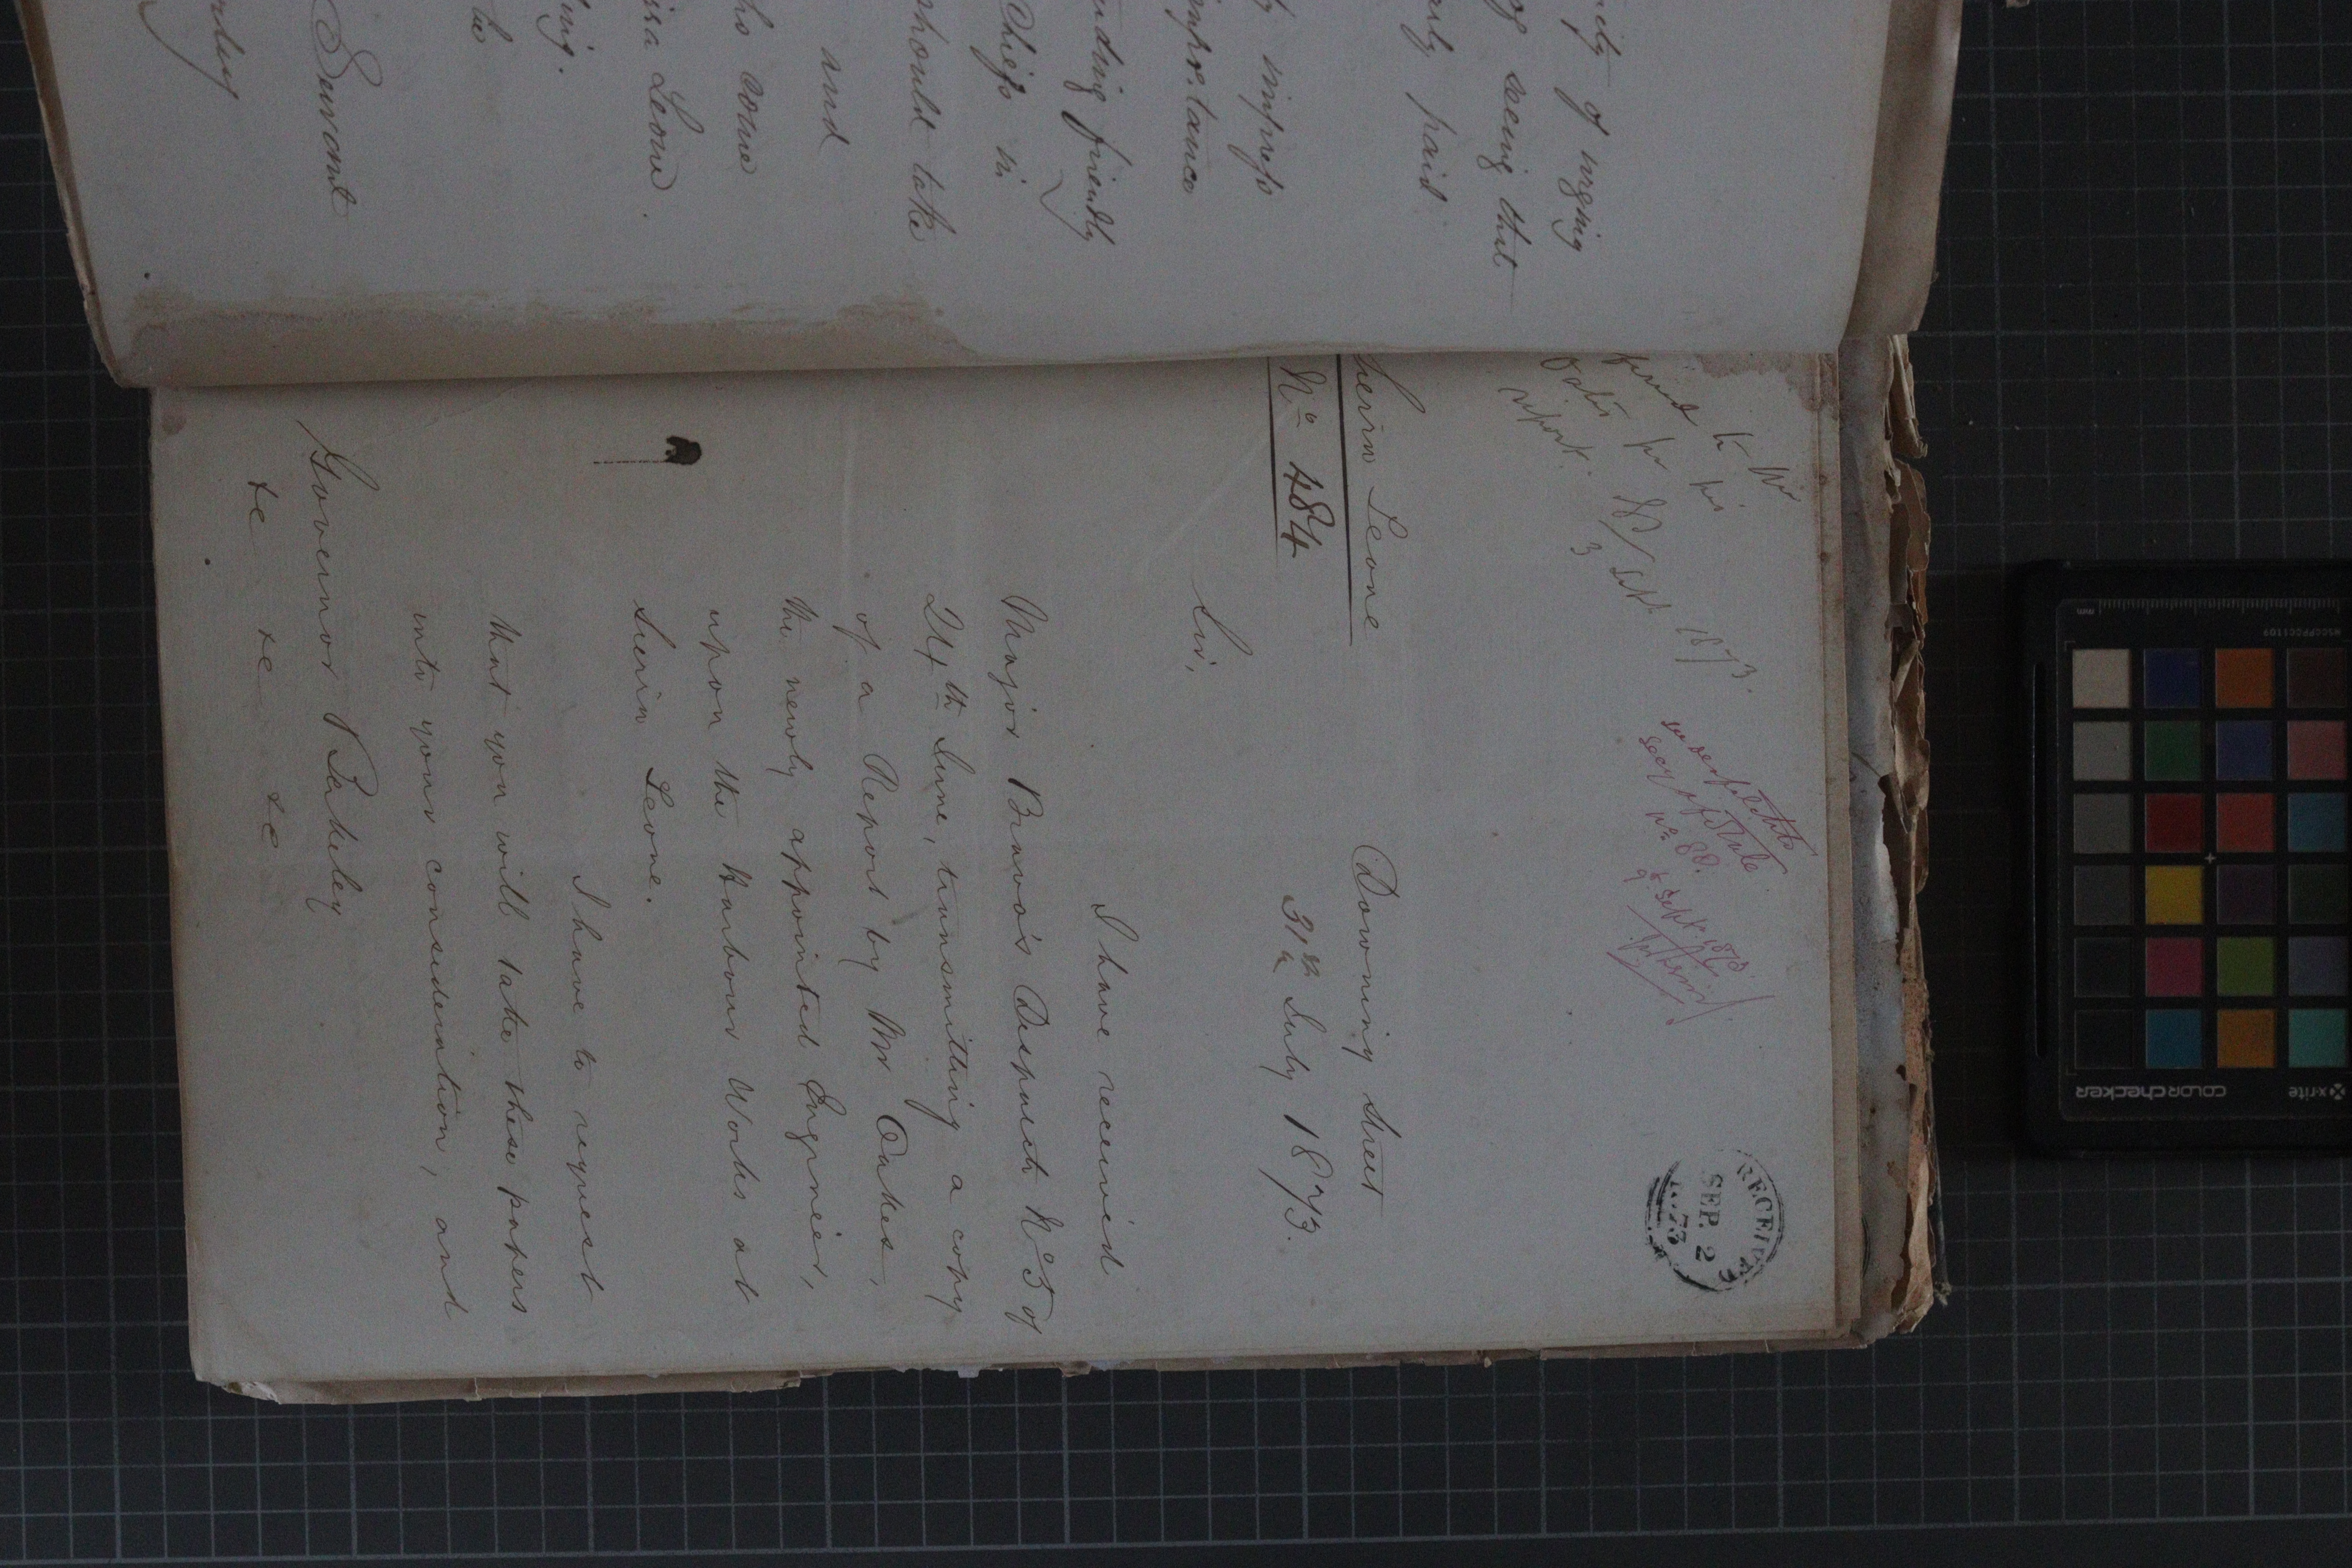 of urging
seeing that
paid
impress
importance
friendly
Chiefs in
should take
and
who come
Leone.
be
Servant
to Mr
for his
report.
3/Sept. 1873.
Secy of State
No 88.
9th Sept. 1873.
RECEIVED
SEP. 2
1873
Sierra Leone
No 484
Downing Street
31st July 1873.
Sir,
I have received
Major Bravo's Despatch No 5 of
24th June, transmitting a copy
of a Report by Mr Oakes,
the newly appointed Engineer,
upon the Harbour Works at
Sierra Leone.
I have to request
that you will take these papers
into your consideration, and
Governor Berkeley
&c &c &c
x-rite
colorchecker
mm